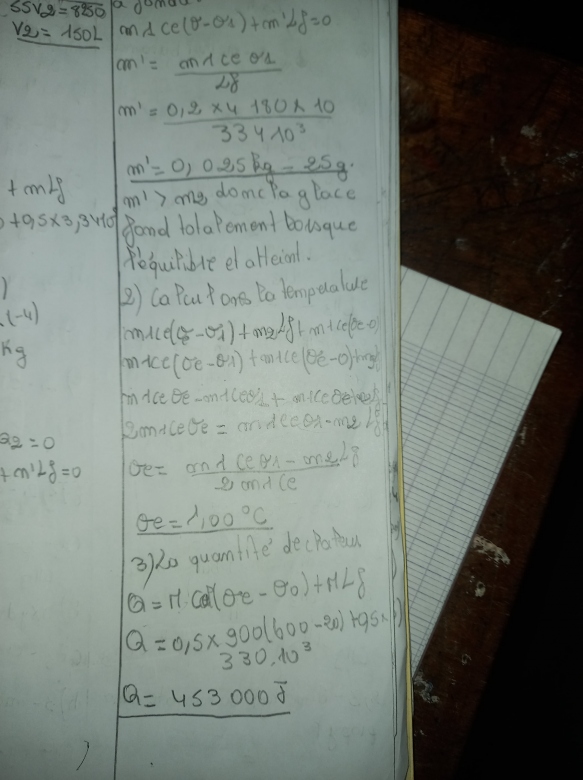 55V2 = 8250
V2 = 150L
+ mLf
+0,5x3,34.10
(-4)
Kg
Q2 = 0
+ m'Lf = 0
m1ce(θ-θ1)+m'Lf=0
m' = m1ceθ1
Lf
m' = 0,2 x 4 180 x 10
334.10³
m' = 0,025kg = 25g.
m' > m2 donc la glace
fond totalement lorsque
l'équilibre et atteint.
2) Calculons la température
m1ce(θe-θ1)+m2Lf+m1ce(θe-0)
m1ce(θe-θ1)+m1ce(θe-0)+m2Lf
m1ceθe-m1ceθ1+m1ceθe+m2Lf
2m1ceθe = m1ceθ1-m2Lf
θe = m1ceθ1-m2Lf
2m1ce
θe = 1,00°C
3) La quantité de chaleur
Q = M.Cal(θe-θ0)+MLf
Q = 0,5x900(600-20)+0,5x
330.10³
Q = 453 000 J